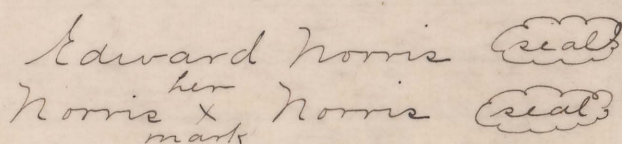 Edward Norris seal
her
Norris x Norris seal
mark